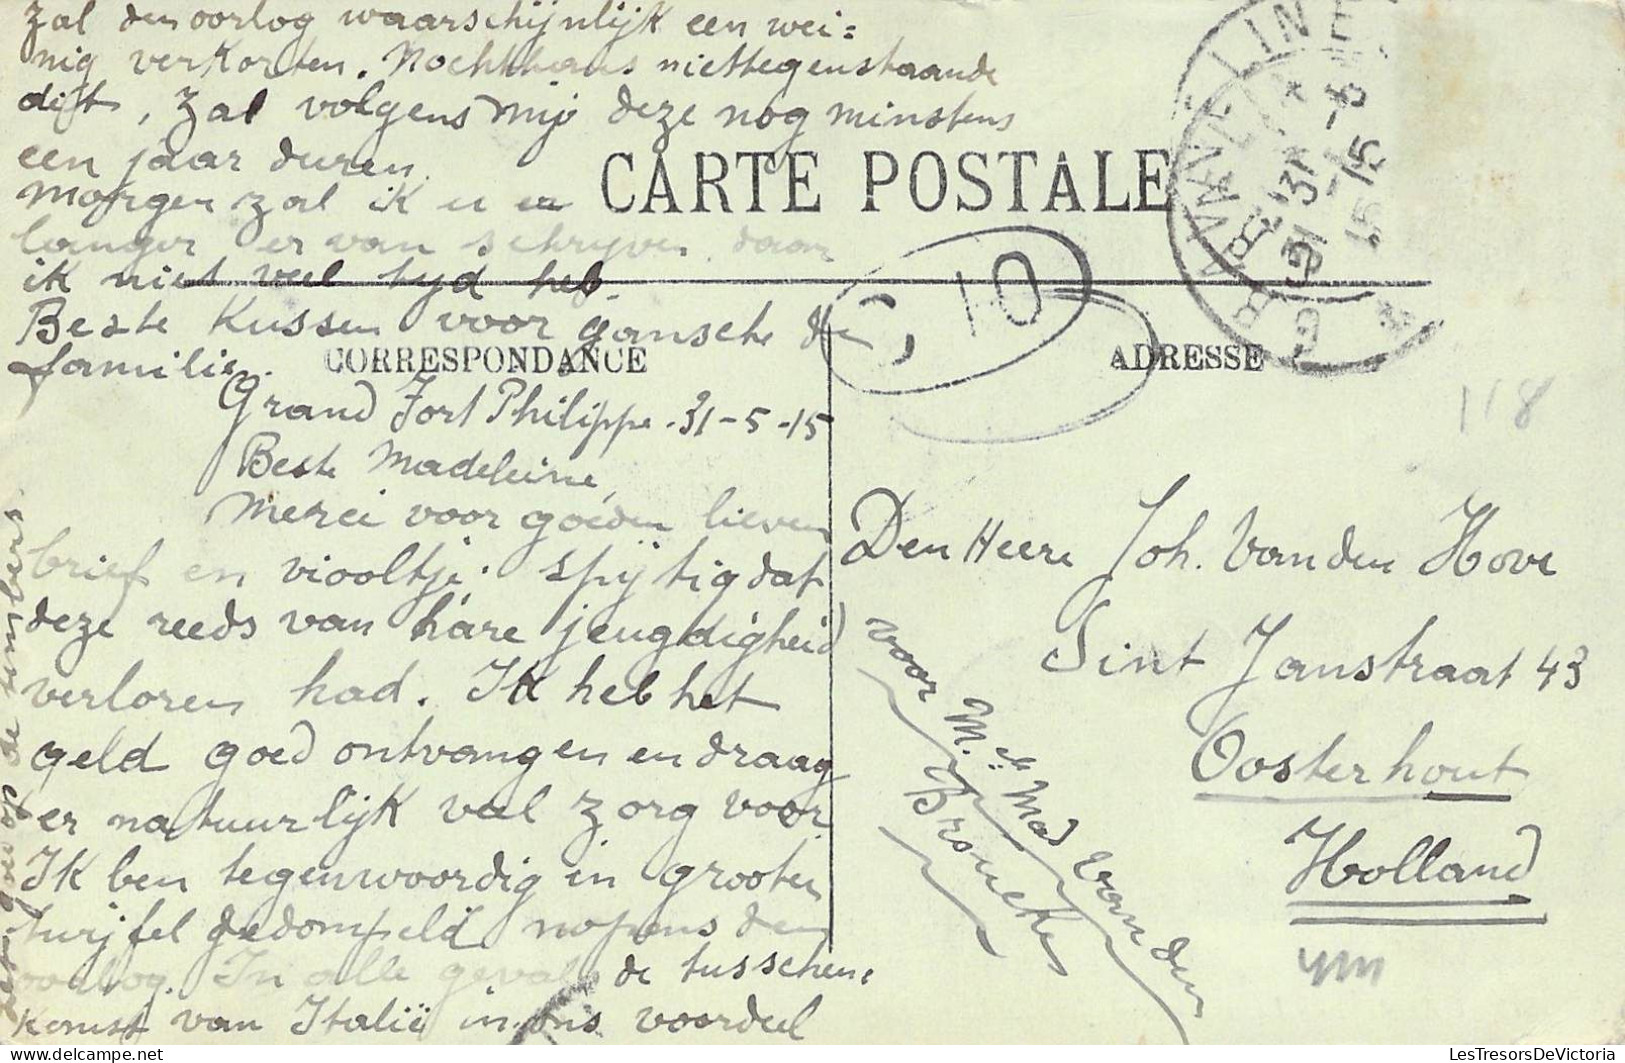 CARTE POSTALE
CORRESPONDANCE
ADRESSE
Grand Fort Philippe. 31-5-15
Beste Madeleine,
Merci voor goeden lieven
brief en viooltje. Spijtig dat
deze reeds van hare jeugdigheid
verloren had. Ik heb het
geld goed ontvangen en draag
er natuurlijk veel zorg voor.
Ik ben tegenwoordig in grooten
twijfel gedompeld nopens den
oorlog. In alle geval de tusschen=
komst van Italië in ons voordeel
zal den oorlog waarschijnlijk een wei=
nig verkorten. Nochthans niettegenstaande
dit, zal volgens mij deze nog minstens
een jaar duren.
Morgen zal ik u
langer er van schrijven daar
ik niet veel tyd heb.
Beste Kussen voor gansche de
familie.
goed op de numbers.
10
GRAVELINES
31 -5 15
118
Den Heere Joh. Van den Hove
Sint Janstraat 43
Oosterhout
Holland
voor M.elle Mad Van den
LesTresorsDeVictoria